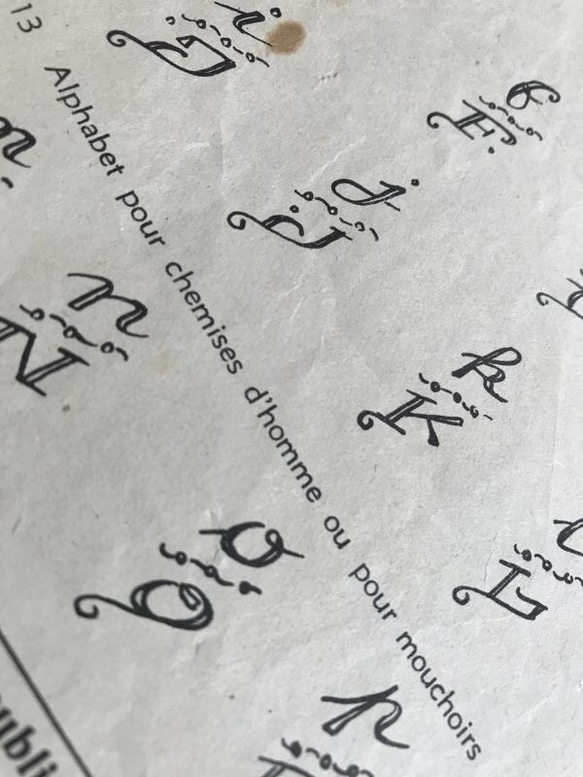 13 Alphabet pour chemises d'homme ou pour mouchoirs
i
I
e
E
j
J
k
K
L
n
N
o
O
p
ubli